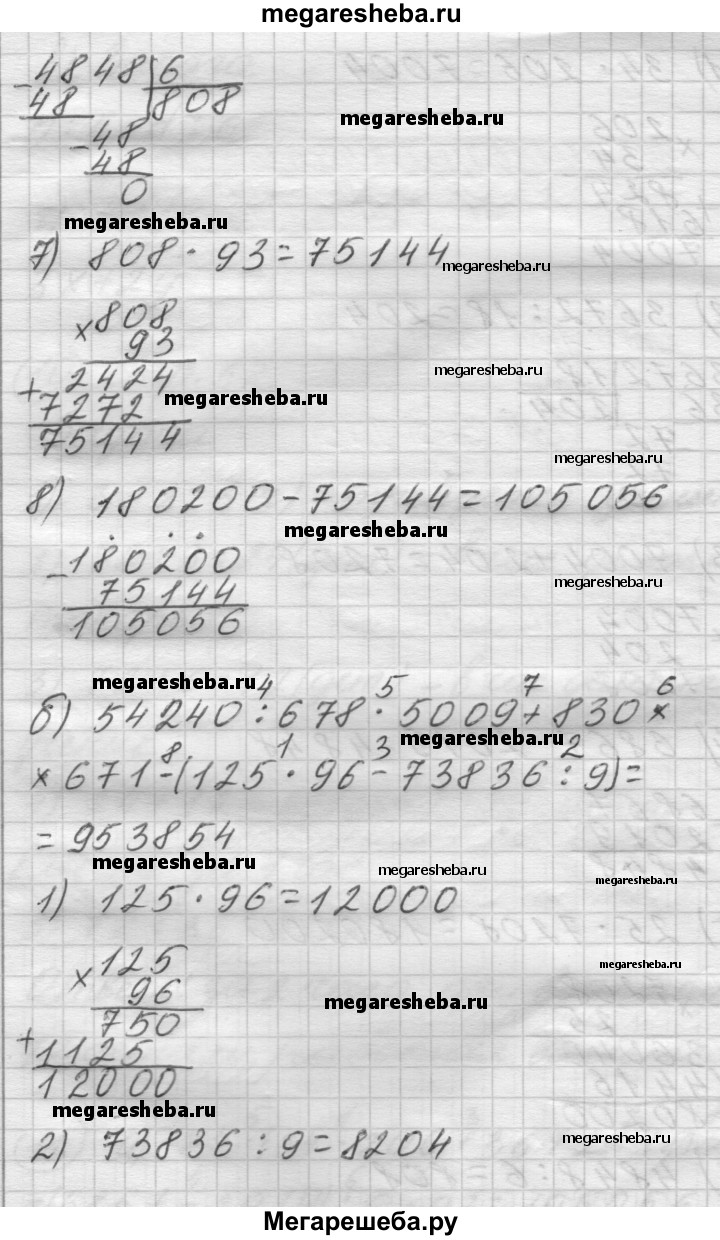 megaresheba.ru
- 4848 | 6
48 | 808
megaresheba.ru
- 48
48
0
megaresheba.ru
7) 808 · 93 = 75144
megaresheba.ru
× 808
93
megaresheba.ru
+ 2424
7272
megaresheba.ru
75144
megaresheba.ru
8) 180200 - 75144 = 105056
megaresheba.ru
- 180200
75144
megaresheba.ru
105056
megaresheba.ru
4 5 7 6
б) 54240 : 678 · 5009 + 830 ×
megaresheba.ru
8 1 3 2
× 671 - (125 · 96 - 73836 : 9) =
= 953854
megaresheba.ru
megaresheba.ru
megaresheba.ru
1) 125 · 96 = 12000
× 125
megaresheba.ru
96
megaresheba.ru
750
+ 1125
12000
megaresheba.ru
2) 73836 : 9 = 8204
megaresheba.ru
Мегарешеба.ру